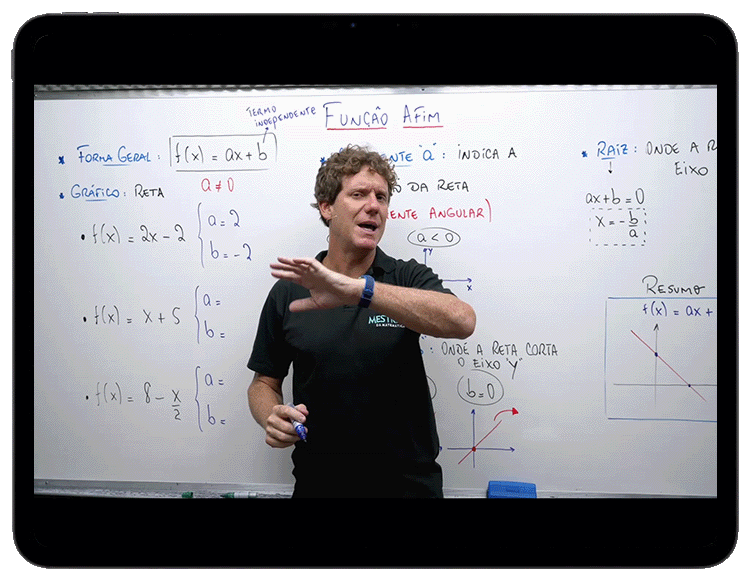 FUNÇÃO AFIM
TERMO
INDEPENDENTE
* FORMA GERAL: f(x) = ax + b
a ≠ 0
* GRÁFICO: RETA
• f(x) = 2x - 2 { a = 2
b = -2
• f(x) = x + 5 { a =
b =
• f(x) = 8 - x/2 { a =
b =
ENTE "a": INDICA A
ÃO DA RETA
ENTE ANGULAR)
a < 0
Y
x
: ONDE A RETA CORTA
O EIXO "Y"
b = 0
MEST
DA MATEMÁTICA
* RAIZ: ONDE A R
EIXO
ax + b = 0
x = -b/a
RESUMO
f(x) = ax +